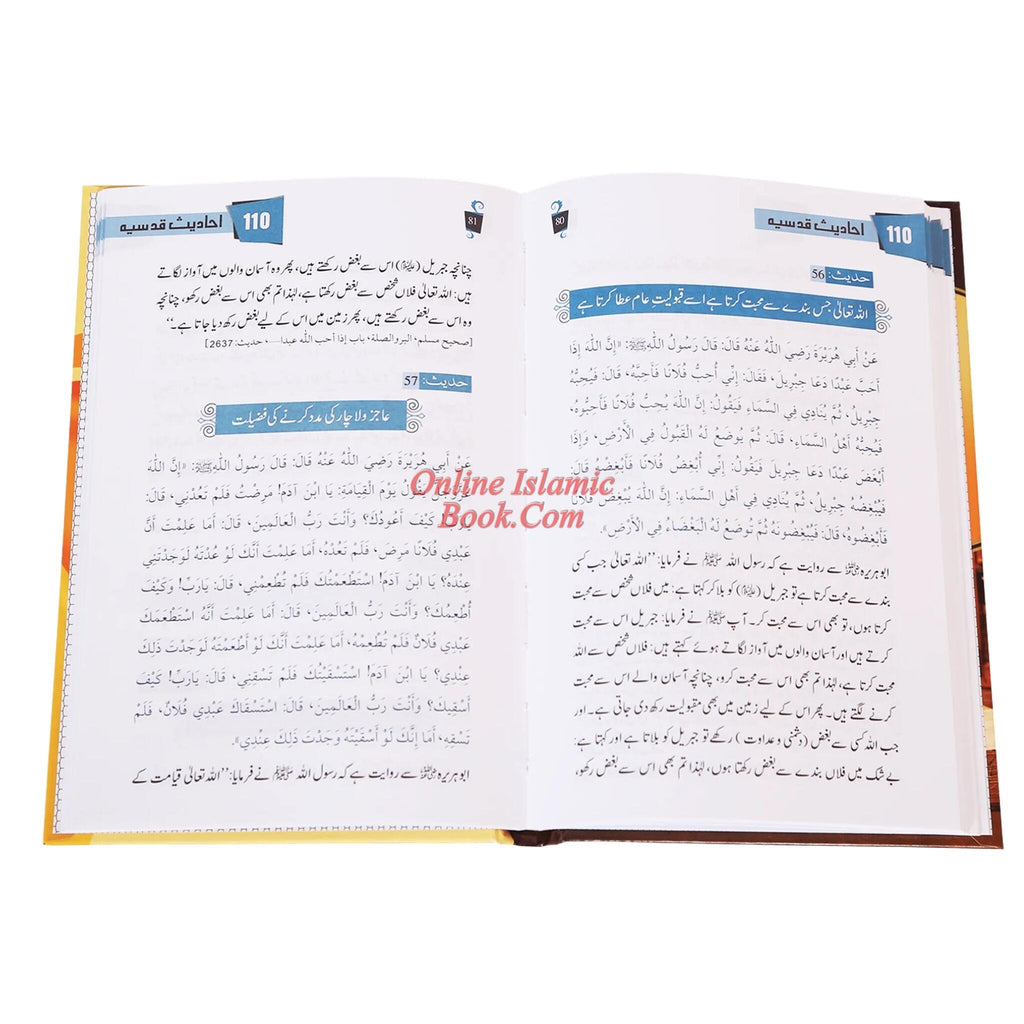 110 احادیث قدسیہ
80
حدیث: 56
اللہ تعالیٰ جس بندے سے محبت کرتا ہے اسے قبولیتِ عام عطا کرتا ہے
عَنْ أَبِي هُرَيْرَةَ رَضِيَ اللهُ عَنْهُ قَالَ: قَالَ رَسُولُ اللهِ ﷺ: «إِنَّ اللهَ إِذَا
أَحَبَّ عَبْدًا دَعَا جِبْرِيلَ، فَقَالَ: إِنِّي أُحِبُّ فُلَانًا فَأَحِبَّهُ، قَالَ: فَيُحِبُّهُ
جِبْرِيلُ، ثُمَّ يُنَادِي فِي السَّمَاءِ فَيَقُولُ: إِنَّ اللهَ يُحِبُّ فُلَانًا فَأَحِبُّوهُ،
فَيُحِبُّهُ أَهْلُ السَّمَاءِ، قَالَ: ثُمَّ يُوضَعُ لَهُ الْقَبُولُ فِي الْأَرْضِ، وَإِذَا
أَبْغَضَ عَبْدًا دَعَا جِبْرِيلَ فَيَقُولُ: إِنِّي أُبْغِضُ فُلَانًا فَأَبْغِضْهُ قَالَ:
فَيُبْغِضُهُ جِبْرِيلُ، ثُمَّ يُنَادِي فِي أَهْلِ السَّمَاءِ: إِنَّ اللهَ يُبْغِضُ فُلَانًا
فَأَبْغِضُوهُ، قَالَ: فَيُبْغِضُونَهُ ثُمَّ تُوضَعُ لَهُ الْبَغْضَاءُ فِي الْأَرْضِ».
ابوہریرہ رضی اللہ عنہ سے روایت ہے کہ رسول اللہ ﷺ نے فرمایا: ’’اللہ تعالیٰ جب کسی
بندے سے محبت کرتا ہے تو جبریل (علیہ السلام) کو بلا کر کہتا ہے: میں فلاں شخص سے محبت
کرتا ہوں، تو بھی اس سے محبت کر۔ آپ ﷺ نے فرمایا: جبریل اس سے محبت
کرتے ہیں اور آسمان والوں میں آواز لگاتے ہوئے کہتے ہیں: فلاں شخص سے اللہ
محبت کرتا ہے، لہٰذا تم بھی اس سے محبت کرو، چنانچہ آسمان والے اس سے محبت
کرنے لگتے ہیں۔ پھر اس کے لیے زمین میں بھی مقبولیت رکھ دی جاتی ہے۔ اور
جب اللہ کسی سے بغض (دشمنی و عداوت) رکھے تو جبریل کو بلاتا ہے اور کہتا ہے:
بے شک میں فلاں بندے سے بغض رکھتا ہوں، لہٰذا تم بھی اس سے بغض رکھو،
110 احادیث قدسیہ
81
چنانچہ جبریل (علیہ السلام) اس سے بغض رکھتے ہیں، پھر وہ آسمان والوں میں آواز لگاتے
ہیں: اللہ تعالیٰ فلاں شخص سے بغض رکھتا ہے، لہٰذا تم بھی اس سے بغض رکھو، چنانچہ
وہ اس سے بغض رکھتے ہیں، پھر زمین میں اس کے لیے بغض رکھ دیا جاتا ہے۔‘‘
[صحیح مسلم، البر والصلة، باب إذا أحب الله عبدا...، حدیث: 2637]
حدیث: 57
عاجز ولاچار کی مدد کرنے کی فضیلت
عَنْ أَبِي هُرَيْرَةَ رَضِيَ اللهُ عَنْهُ قَالَ: قَالَ رَسُولُ اللهِ ﷺ: «إِنَّ اللهَ
يَقُولُ يَوْمَ الْقِيَامَةِ: يَا ابْنَ آدَمَ! مَرِضْتُ فَلَمْ تَعُدْنِي، قَالَ:
كَيْفَ أَعُودُكَ؟ وَأَنْتَ رَبُّ الْعَالَمِينَ، قَالَ: أَمَا عَلِمْتَ أَنَّ
عَبْدِي فُلَانًا مَرِضَ، فَلَمْ تَعُدْهُ، أَمَا عَلِمْتَ أَنَّكَ لَوْ عُدْتَهُ لَوَجَدْتَنِي
عِنْدَهُ؟ يَا ابْنَ آدَمَ! اسْتَطْعَمْتُكَ فَلَمْ تُطْعِمْنِي، قَالَ: يَارَبِّ! وَكَيْفَ
أُطْعِمُكَ؟ وَأَنْتَ رَبُّ الْعَالَمِينَ، قَالَ: أَمَا عَلِمْتَ أَنَّهُ اسْتَطْعَمَكَ
عَبْدِي فُلَانٌ فَلَمْ تُطْعِمْهُ، أَمَا عَلِمْتَ أَنَّكَ لَوْ أَطْعَمْتَهُ لَوَجَدْتَ ذَلِكَ
عِنْدِي؟ يَا ابْنَ آدَمَ! اسْتَسْقَيْتُكَ فَلَمْ تَسْقِنِي، قَالَ: يَارَبِّ! كَيْفَ
أَسْقِيكَ؟ وَأَنْتَ رَبُّ الْعَالَمِينَ، قَالَ: اسْتَسْقَاكَ عَبْدِي فُلَانٌ، فَلَمْ
تَسْقِهِ، أَمَا إِنَّكَ لَوْ أَسْقَيْتَهُ وَجَدْتَ ذَلِكَ عِنْدِي».
ابوہریرہ رضی اللہ عنہ سے روایت ہے کہ رسول اللہ ﷺ نے فرمایا: ’’اللہ تعالیٰ قیامت کے
Online Islamic
Book.Com